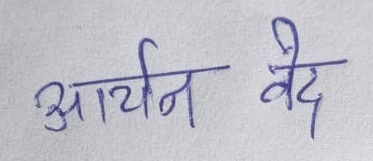 आर्यन वेद